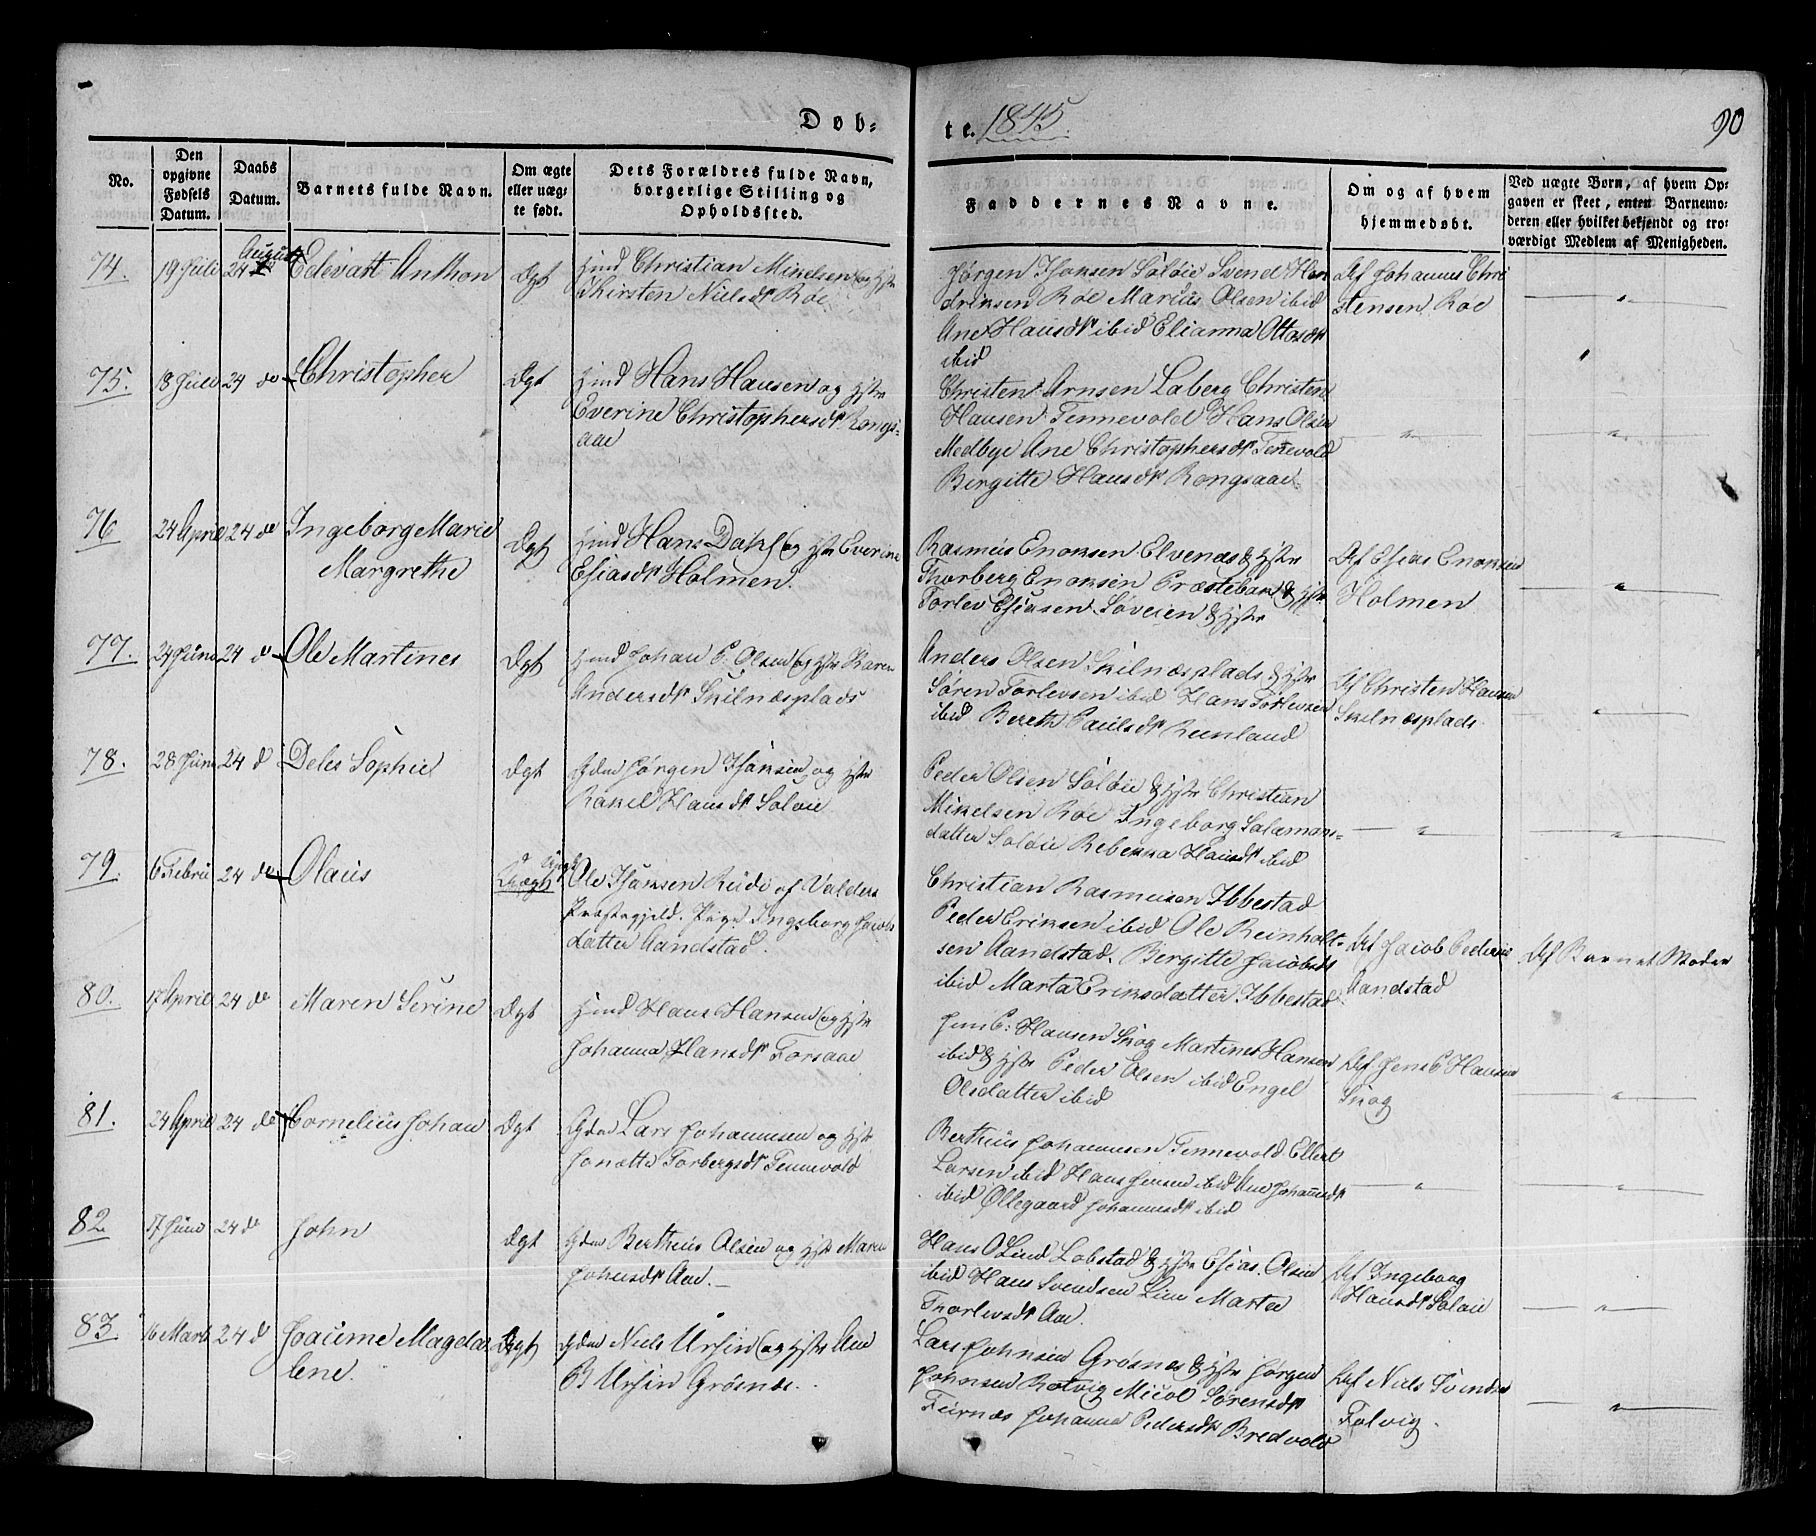 Døb-
te. 1845.
90
No.
Den opgivne Fødsels Datum.
Daabs Datum.
Barnets fulde Navn.
Om ægte eller uægte født.
Dets Forældres fulde Navn, borgerlige Stilling og Opholdssted.
Faddernes Navne.
Om og af hvem hjemmedøbt.
Ved uægte Børn, af hvem Opgaven er skeet, enten Barnemoderen eller hvilket bekjendt og troværdigt Medlem af Menigheden.
74.
19 Juli
24 August
Edevart Anthon
Ægt
Hmd Christian Mikelsen og Hstr
Kirsten Nielsdt Roe
Jørgen Isaksen Soløie Svend Hen
driksen Roe Marius Olsen ibid
Ane Hansdt ibid Elianna Ottosdt
ibid
Af Johannes Chri
stensen Roe
75.
18 Juli
24 do
Christopher
Ægt
Hmd Hans Hansen og Hstr
Everine Christophersdt Rongs-
aae
Christen Arnsen Laberg Christen
Hansen Tennevold Hans Olsen
Medbye Ane Christophersdt Tenevold
Birgitte Hansdt Rongsaae
76
24 April
24 do
Ingeborg Marie
Margrethe
Ægt
Hmd Hans Dahl og Hstr Everine
Esiasdt Holmen.
Rasmus Enoksen Elvenæs & Hstr
Thorberg Enoksen Præstebak & Hstr
Torlev Esiasen Søveien & Hstr
Af Esias Enoksen
Holmen
77.
24 Juni
24 do
Ole Martines
Ægt
Hmd Johan P. Olsen og Hstr Karen
Andersdt Skilnæsplads
Anders Olsen Skilnæsplads & Hstr
Søren Torlevsen ibid Hans Torlevsen
ibid Bereth Paulsdt Reenland
Af Christen Hansen
Skilnæsplads
78.
28 Juni
24 d
Deles Sophie
Ægt
Gdm Jørgen Isaksen og Hstr
Rakel Hansdt Soløie
Peder Olsen Soløie & Hstr Christian
Mikelsen Roe Ingeborg Salamons-
datter Soløie Rebekka Hansdt ibid
79.
6 Febru
24 do
Olaus
Uægt
Ole Isaksen Rude af Valders
Præstegjeld. Pige Ingeborg Jacobs
datter Aandstad.
Christian Rasmusen Ibbestad
Peder Eriksen ibid Ole Reinholt-
sen Aandstad. Bergitte Jacobsdt
ibid Marta Eriksdatter Ibbestad
Af Jacob Pedersen
Aandstad
Af Barnets Moder
80.
17 April
24 do
Maren Serine
Ægt
Hmd Hans Hansen og Hstr
Johanna Hansdt Forsaae
Jens P. Hansen Skog Martines Hansen
ibid & Hstr Peder Olsen ibid Engel
Olsdatter ibid
Af Jens P Hansen
Skog
81.
24 April
24 do
Cornelius Johan
Ægt
Gdm Lars Johannesen og Hstr
Jonætte Torbergsdt Tennevold
Berthius Johannesen Tennevold Ellert
Larsen ibid Hans Jensen ibid Ane Johannesdt
ibid Øllegaard Johannesdt ibid
82
17 Juni
24 do
John
Ægt
Gdm Berthius Olsen og Hstr Maren
Johnsdt Aae.
Hans O Lind Lobstad & Hstr Esias Olsen
ibid Hans Svendsen Lien Marta
Thorlevsdt Aae.
Af Ingeborg
Hansdt Soløie
83
16 Marts
24 d
Joachime Magda
lene.
Ægt
Gdm Niels Ursin og Hstr Ane
B Ursin Grøsnæs.
Lars Johnsen Grøsnes & Hstr Jørgen
Johnsen Rotvig Micol Sørensdt
Feirnæs Johanna Pedersdt Bredvold
Af Niels Svendsen
Folvig.